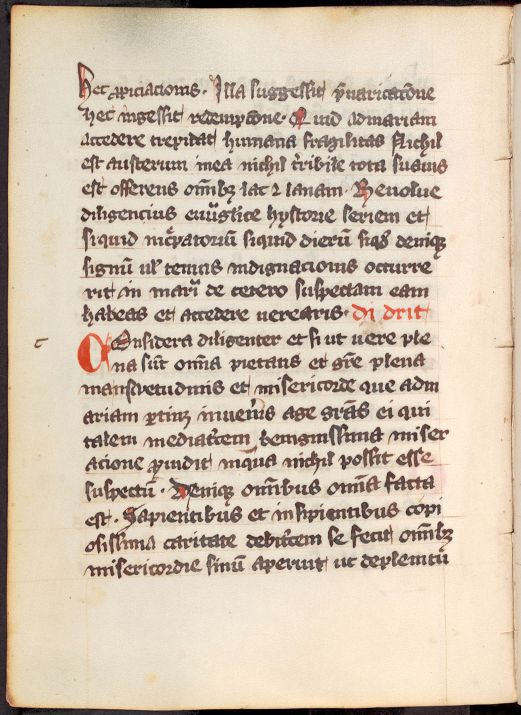 hec ꝓpiciacionis. Illa suggessit p̄uaricacōne
hec ingessit redempcōne. Quid ad mariam
accedere trepidat humana fragilitas Nichil
est austerum in ea nichil tꝛ̄ribile tota suauis
est offerens om̄ibꝫ lac ⁊ lanam. Reuolue
diligencius euūglice hystorie seriem et
si quid incͣpatoriū si quid dierū siqd̄ deniqꝫ
signū ul̓ tenuis indignacionis occurre
rit in mari᷑ de cetero suspectam eam
habeas et accedere uerearis. di drit
c
Considera diligenter et si ut uere ple
na sūt om̄ia pietatis et gr̄e plena
mansvetudinis et misericorde que ad m
ariam ꝑtinꝫ inuen̓is age gr̄as ei qui
talem mediatͨcem benignissima miser
acione ꝓuidit in qͣ nichil possit esse
suspectū. Deniqꝫ om̄ibus om̄ia facta
est. Sapientibus et insipientibus copi
osissima caritate debitͨcem se fecit om̄ibꝫ
misericordie sinū aperuit ut de plenitu